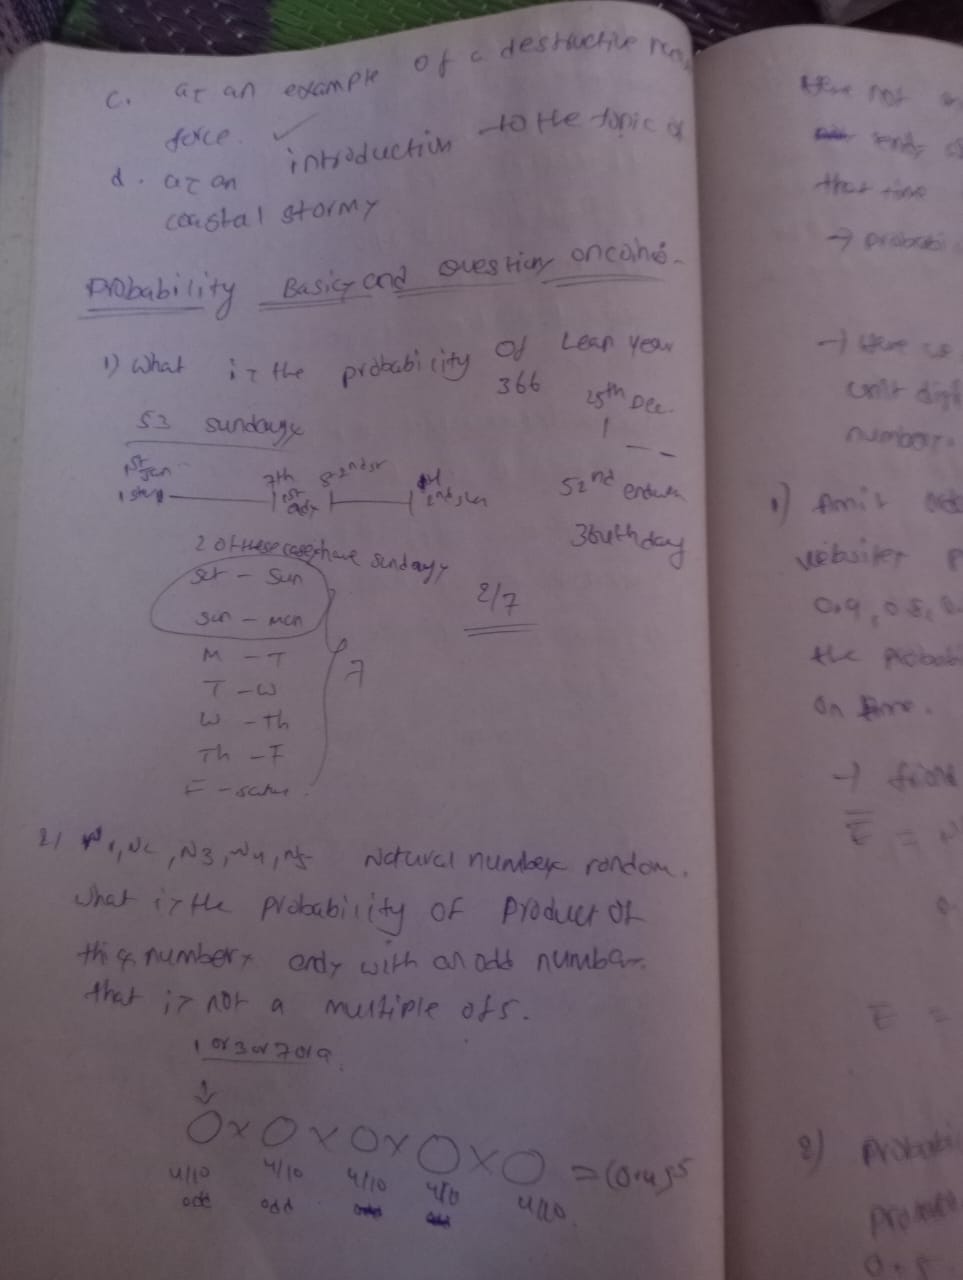 c. as an example of a destructive
force. ✓
d. as an introduction to the topic of
coastal stormy
Probability Basics and Questions on coins-
1) What is the probability of Leap year
366
53 sundays
25th Dec.
1st Jan
7th 8-2nd st
1st
2nd
52nd
36th day
2 of these cases have sundays
sat - Sun
sun - mon
2/7
M - T
T - W
7
W - Th
Th - F
F - satur.
2) N1, N2, N3, N4, N5 Natural numbers random.
What is the probability of Product of
numbers ends with an odd number
that is not a multiple of 5.
1 or 3 or 7 or 9.
O x O x O x O x O = (0.4)^5
4/10 4/10 4/10 4/10 4/10
odd odd
Here not
ends
that time
→ probabi
→ Here
unit digi
number.
1) Amit
websites P
0.9, 0.8,
the Probabi
on time.
Ē = N
E =
2) Probabi
0.5